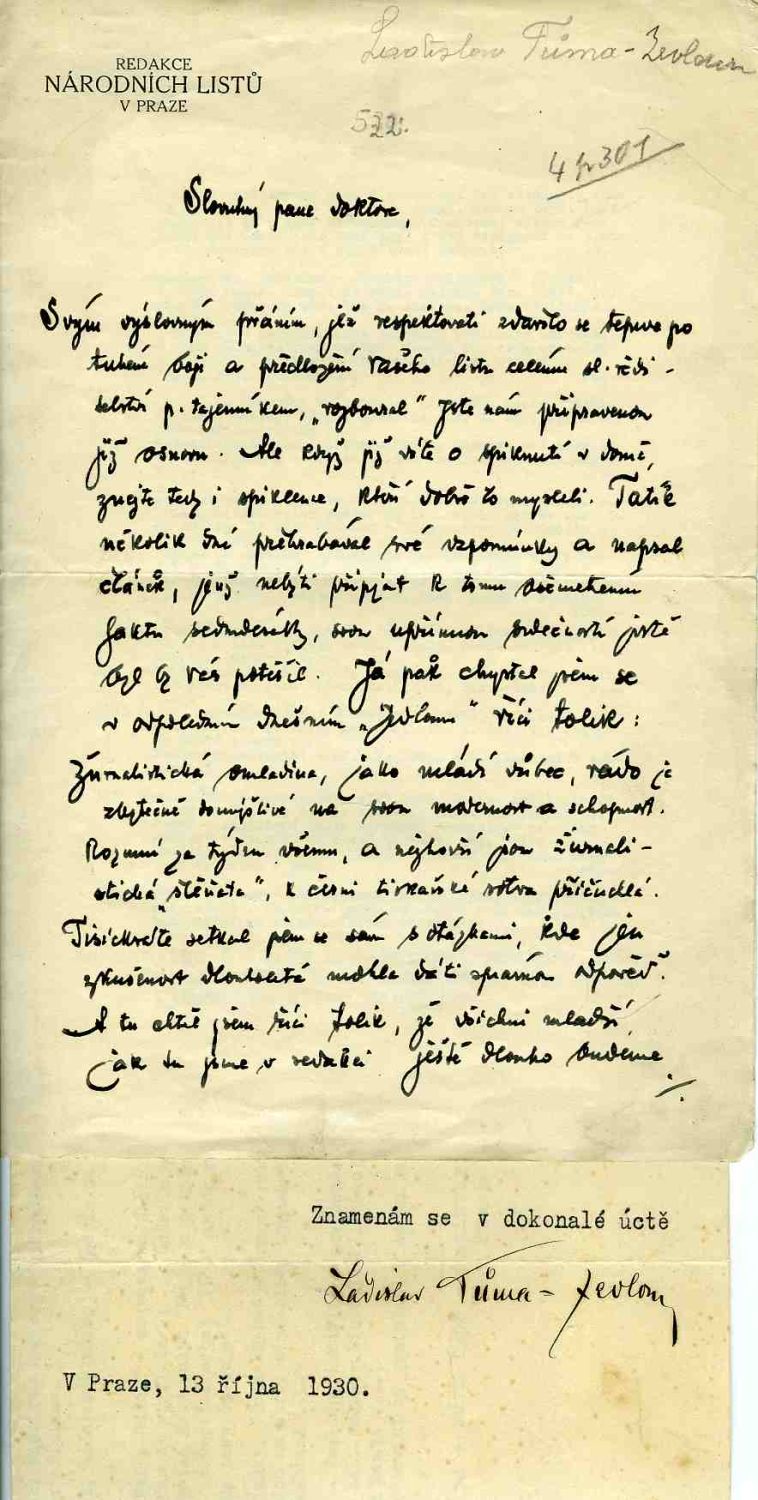 Ladislav Tůma-Zevloun
REDAKCE
NÁRODNÍCH LISTŮ
V PRAZE
522.
Slovutný pane doktore,
Svým výslovným přáním, jež respektovati zdařilo se teprve po
tuhém boji a předložení Vašeho listu celému sl. ředi-
telství p. tajemníkem, „rozboural" jste nám připravenou
již osnovu. Ale když již víte o spiknutí v domě,
znejte tedy i spiklence, kteří dobře to mysleli. Tatík
několik dní přehrabával své vzpomínky a napsal
článek, jenž nebýti připjat k tomu ošemetnému
faktu sedmdesátky, svou upřímnou srdečností jistě
byl by Vás potěšil. Já pak chystal jsem se
v odpoledním dnešním řící tolik:
Žurnalistická omladina, jako mládí vůbec, ráda je
zbytečně domýšlivé na svou modernost a schopnost.
Rozumí za týden všemu, a nejhorší jsou žurnali-
stická „štěňata", k černi tiskařské sotva přičichlá.
Tisíckráte setkal jsem se sám s otázkami, kde jen
zkušenost dlouholetá mohla dáti správnou odpověď.
A tu chtěl jsem říci tolik, že všichni mladší,
jak tu jsme v redakci ještě dlouho budeme
./.
Znamenám se v dokonalé úctě
Ladislav Tůma-Zevloun
V Praze, 13 října 1930.